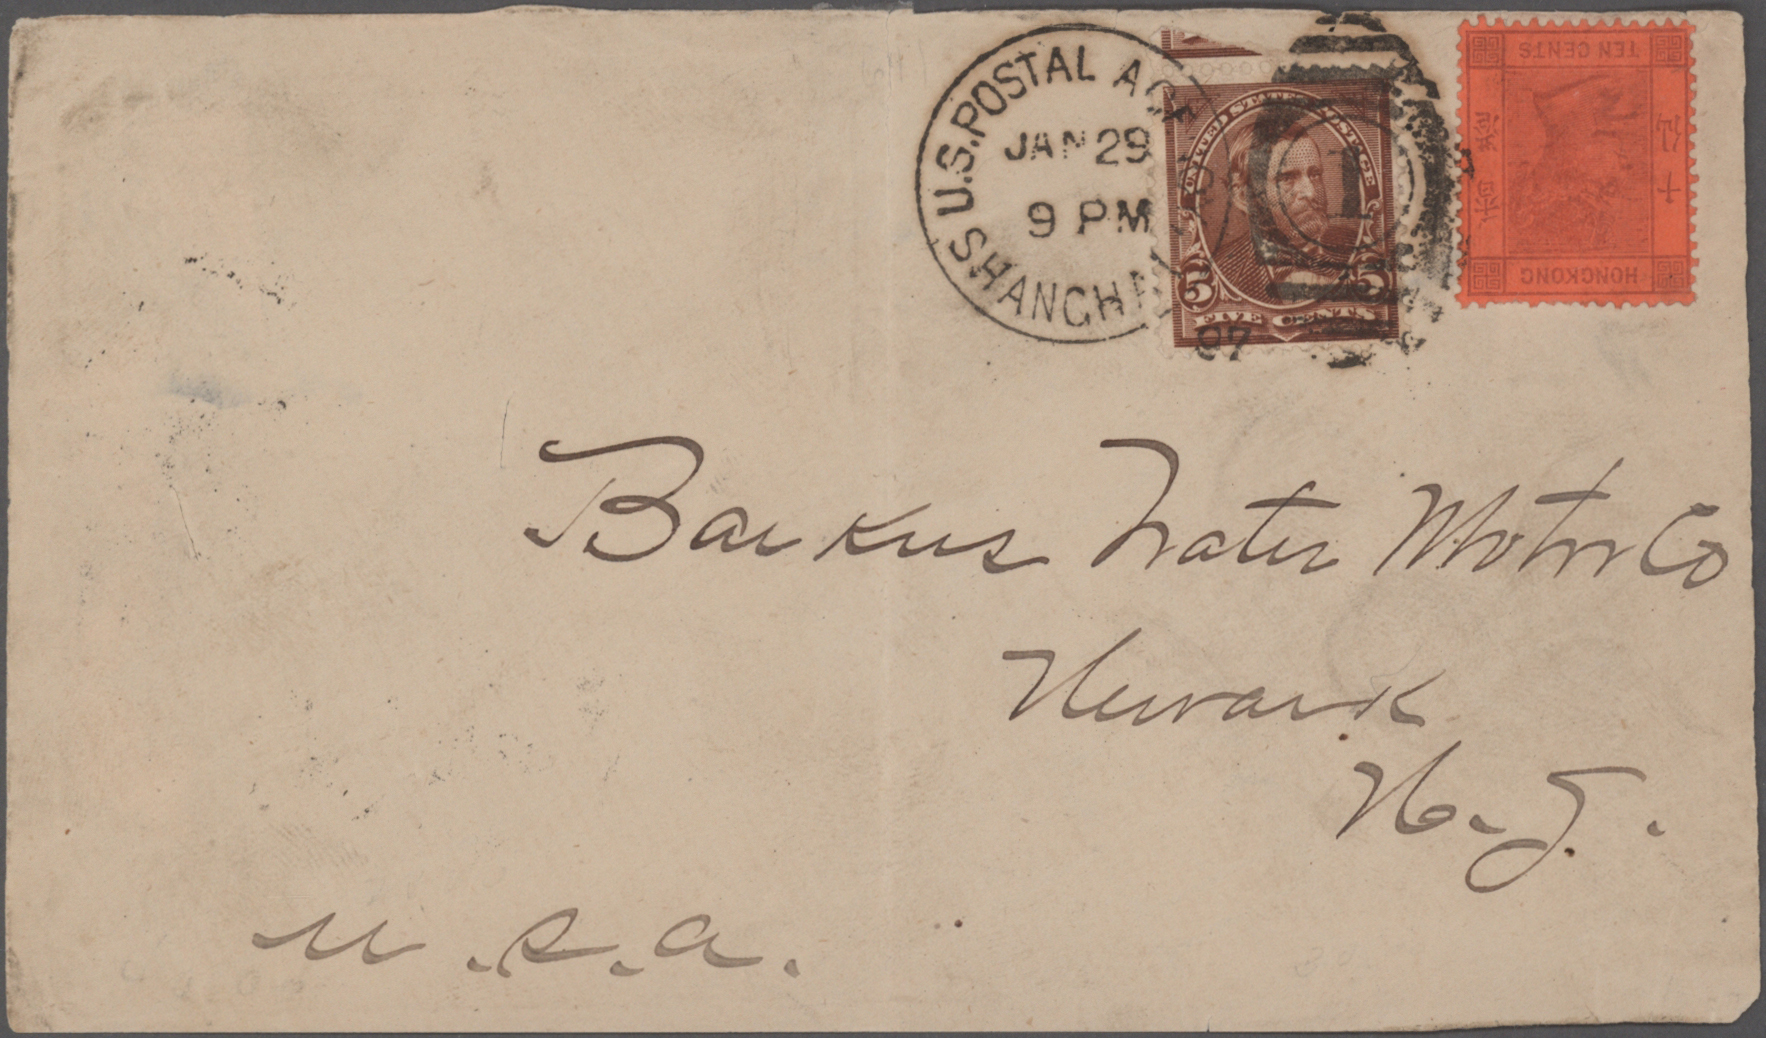 U.S. POSTAL AGENCY
JAN 29
9 PM
SHANGHAI
97
UNITED STATES POSTAGE
5 5
FIVE CENTS
1
TEN CENTS
HONGKONG
Barkus Water Motor Co
Newark
N. J.
U. S. A.